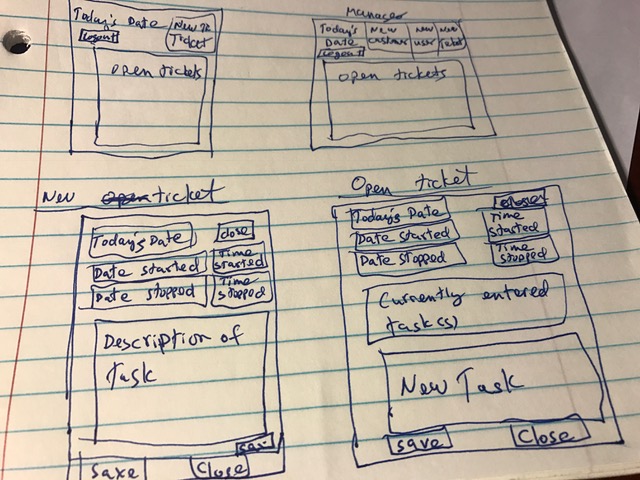 Today's Date
Logout
Ticket
open tickets
Manager
Today's
Date
Logout
New
New
user
New
Ticket
open tickets
New open ticket
Today's Date
close
Date started
Time
started
Date stopped
Time
stopped
Description of
task
Save
Close
Open ticket
Today's Date
close
Date started
Time
started
Date stopped
Time
stopped
Currently entered
task(s)
New Task
save
Close